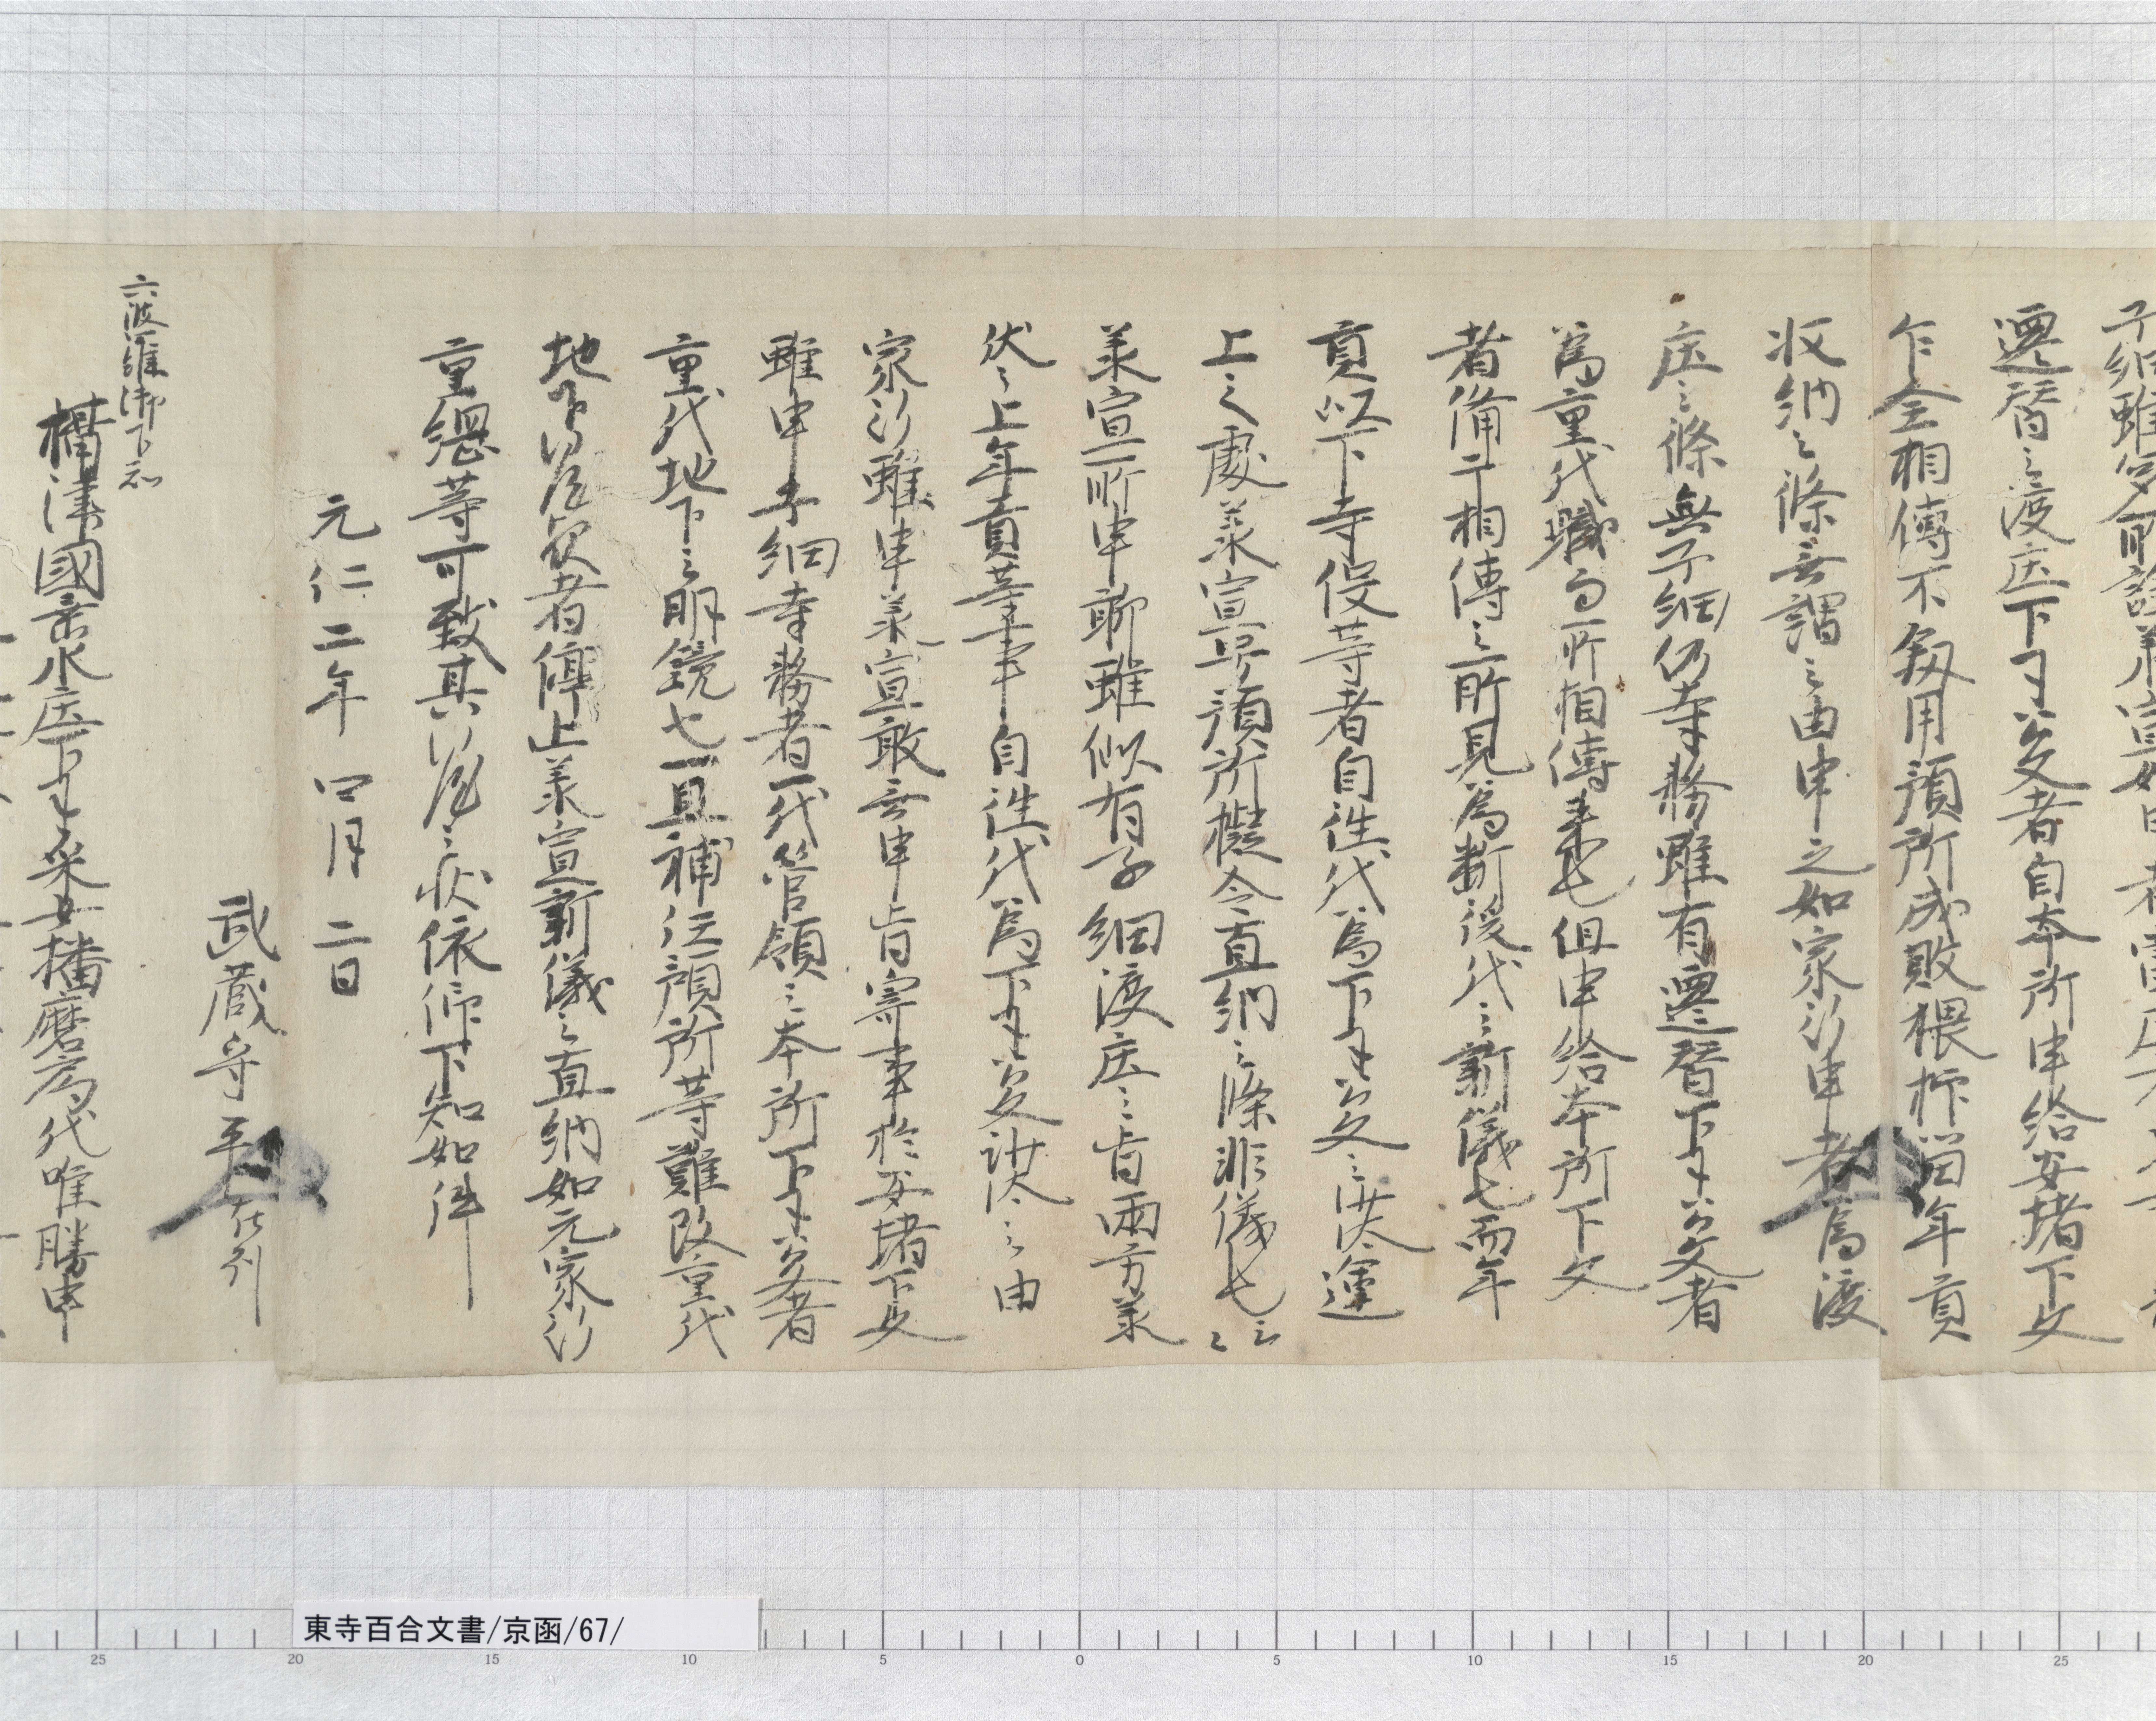 遷替之渡庄下司公文者自本所申給安堵下文
乍全相傳不叙用預所成敗猥抑留年貢
収納之條無謂之由申之如家行申者為渡
庄之條無子細仍寺務雖有遷替下司公文者
為重代職而所相傳来也但申給本所下文
者備于相傳之所見為断後代之新儀也而年
貢以下寺役等者自往代為下司公文之沙汰運
上之處兼宣号預所擬令直納之條非儀也云々
兼宣所申聊雖似有子細渡庄之旨両方兼
伏之上年貢等事自往代為下司公文沙汰之由
家行雖申兼宣敢無申旨寄事於安堵下文
雖申子細寺務者一代管領之本所下司公文者
重代地下之明鏡也一旦補任預所等難改重代
地下沙汰歟者停止兼宣新儀之直納如元家行
重綱等可致其沙汰之状依仰下知如件
元仁二年四月二日
武蔵守平在判
六波羅御下知
攝津國垂水庄下司采女播磨局代唯勝申
東寺百合文書/京函/67/
25 20 15 10 5 0 5 10 15 20 25